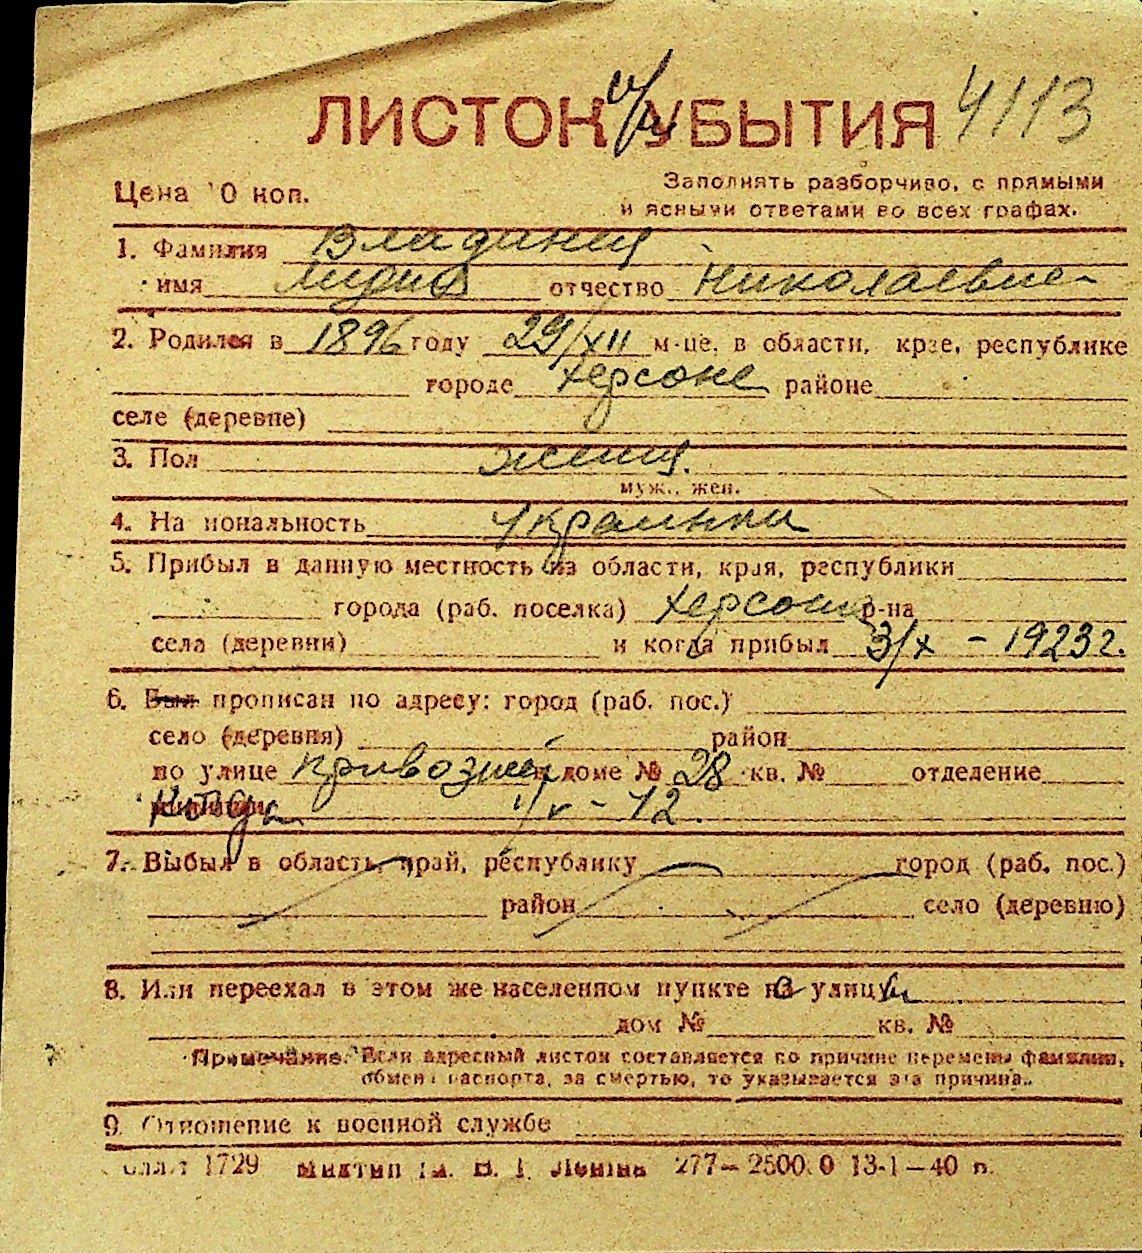 ЛИСТОК УБЫТИЯ 4113
Цена 10 коп.
Заполнять разборчиво, с прямыми
и ясными ответами во всех графах.
1. Фамилия
имя Лидия отчество Николаевна
2. Родился в 1896 году 29/XII м-це, в области, крае, республике
городе Херсоне районе
селе (деревне)
3. Пол женщ.
муж., жен.
4. Национальность Украинка
5. Прибыл в данную местность из области, края, республики
города (раб. поселка) Херсона р-на
села (деревни) и когда прибыл 3/X - 1923 г.
6. Был прописан по адресу: город (раб. пос.)
село (деревня) район
по улице Привозная в доме № 28 кв. № отделение
милиции
7. Выбыл в область, край, республику город (раб. пос.)
район село (деревню)
8. Или переехал в этом же населенном пункте на улицу
дом № кв. №
Примечание: Если адресный листок составляется по причине перемены фамилии,
обмена паспорта, за смертью, то указывается эта причина.
9. Отношение к военной службе
1729 В. І. Леніна 277—2500.0 13-1—40 п.